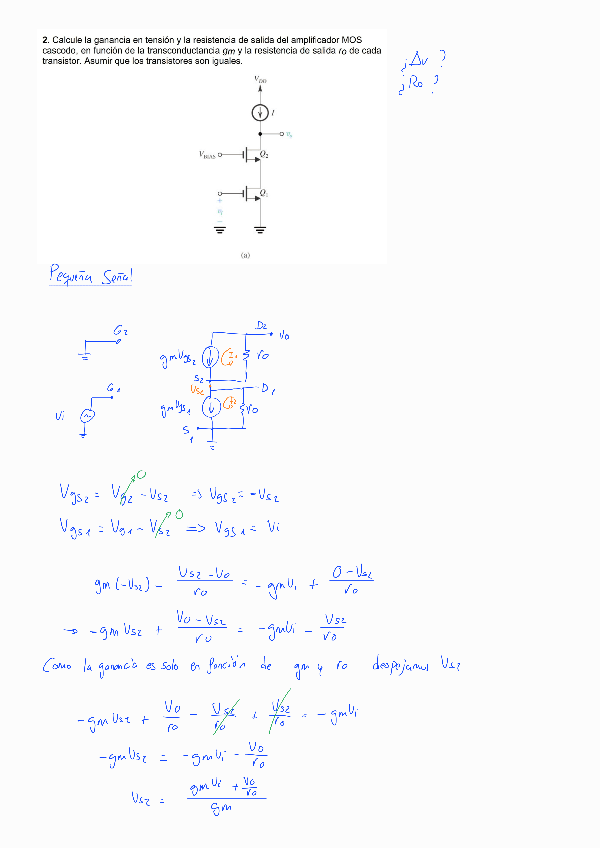 2. Calcule la ganancia en tensión y la resistencia de salida del amplificador MOS
cascodo, en función de la transconductancia gm y la resistencia de salida ro de cada
transistor. Asumir que los transistores son iguales.
¿Av ?
¿Ro ?
VDD
I
vo
VBIAS
Q2
Q1
+
vi
−
(a)
Pequeña Señal
G2
D2
Vo
gmVgs2
ro
S2
Vs2
D1
G1
Vi
gmVgs1
ro
S1
Vgs2 = Vg2 - Vs2 => Vgs2 = -Vs2
0
Vgs1 = Vg1 - Vs2 => Vgs1 = Vi
0
gm (-Vs2) - (Vs2 - Vo)/ro = - gmVi + (0 - Vs2)/ro
→ -gm Vs2 + (Vo - Vs2)/ro = -gmVi - Vs2/ro
Como la ganancia es solo en función de gm y ro despejamos Vs2
-gm Vs2 + Vo/ro - Vs2/ro + Vs2/ro = - gmVi
-gmVs2 = -gmVi - Vo/ro
Vs2 = (gmVi + Vo/ro)/gm